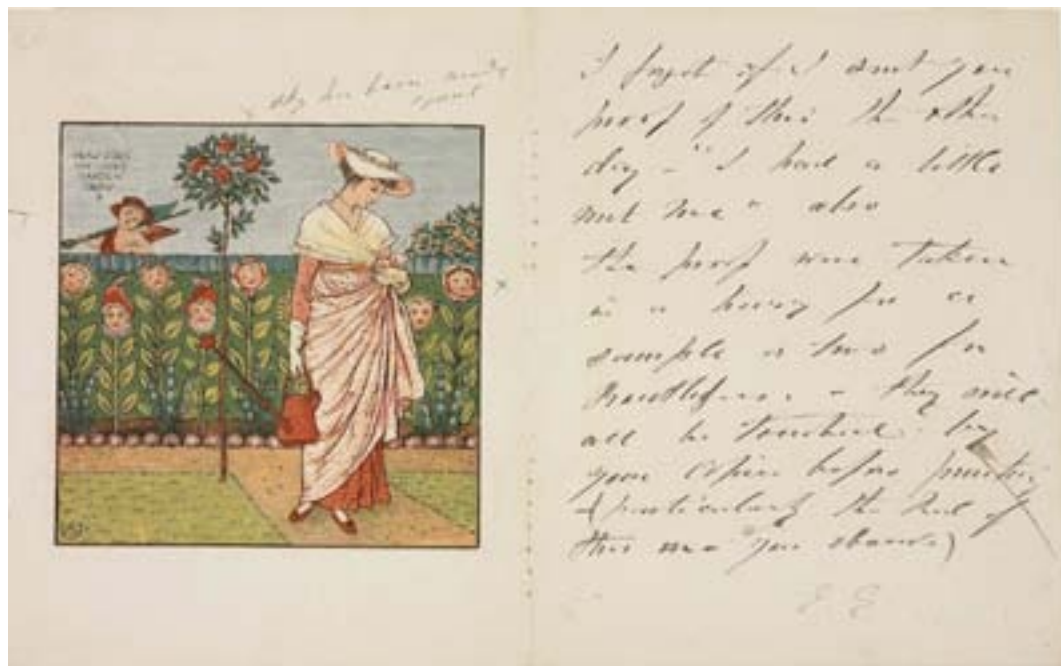 has been
HOW DOES
MY LADY'S
GARDEN
GROW
?
I forget if I sent you
proof of this the other
day – "I had a little
nut tree" also
the proof was taken
in a hurry for a
sample or two for
Routledge. – they will
all be touched by
your copies before printing
(particularly the red of
this one you observe)
E E